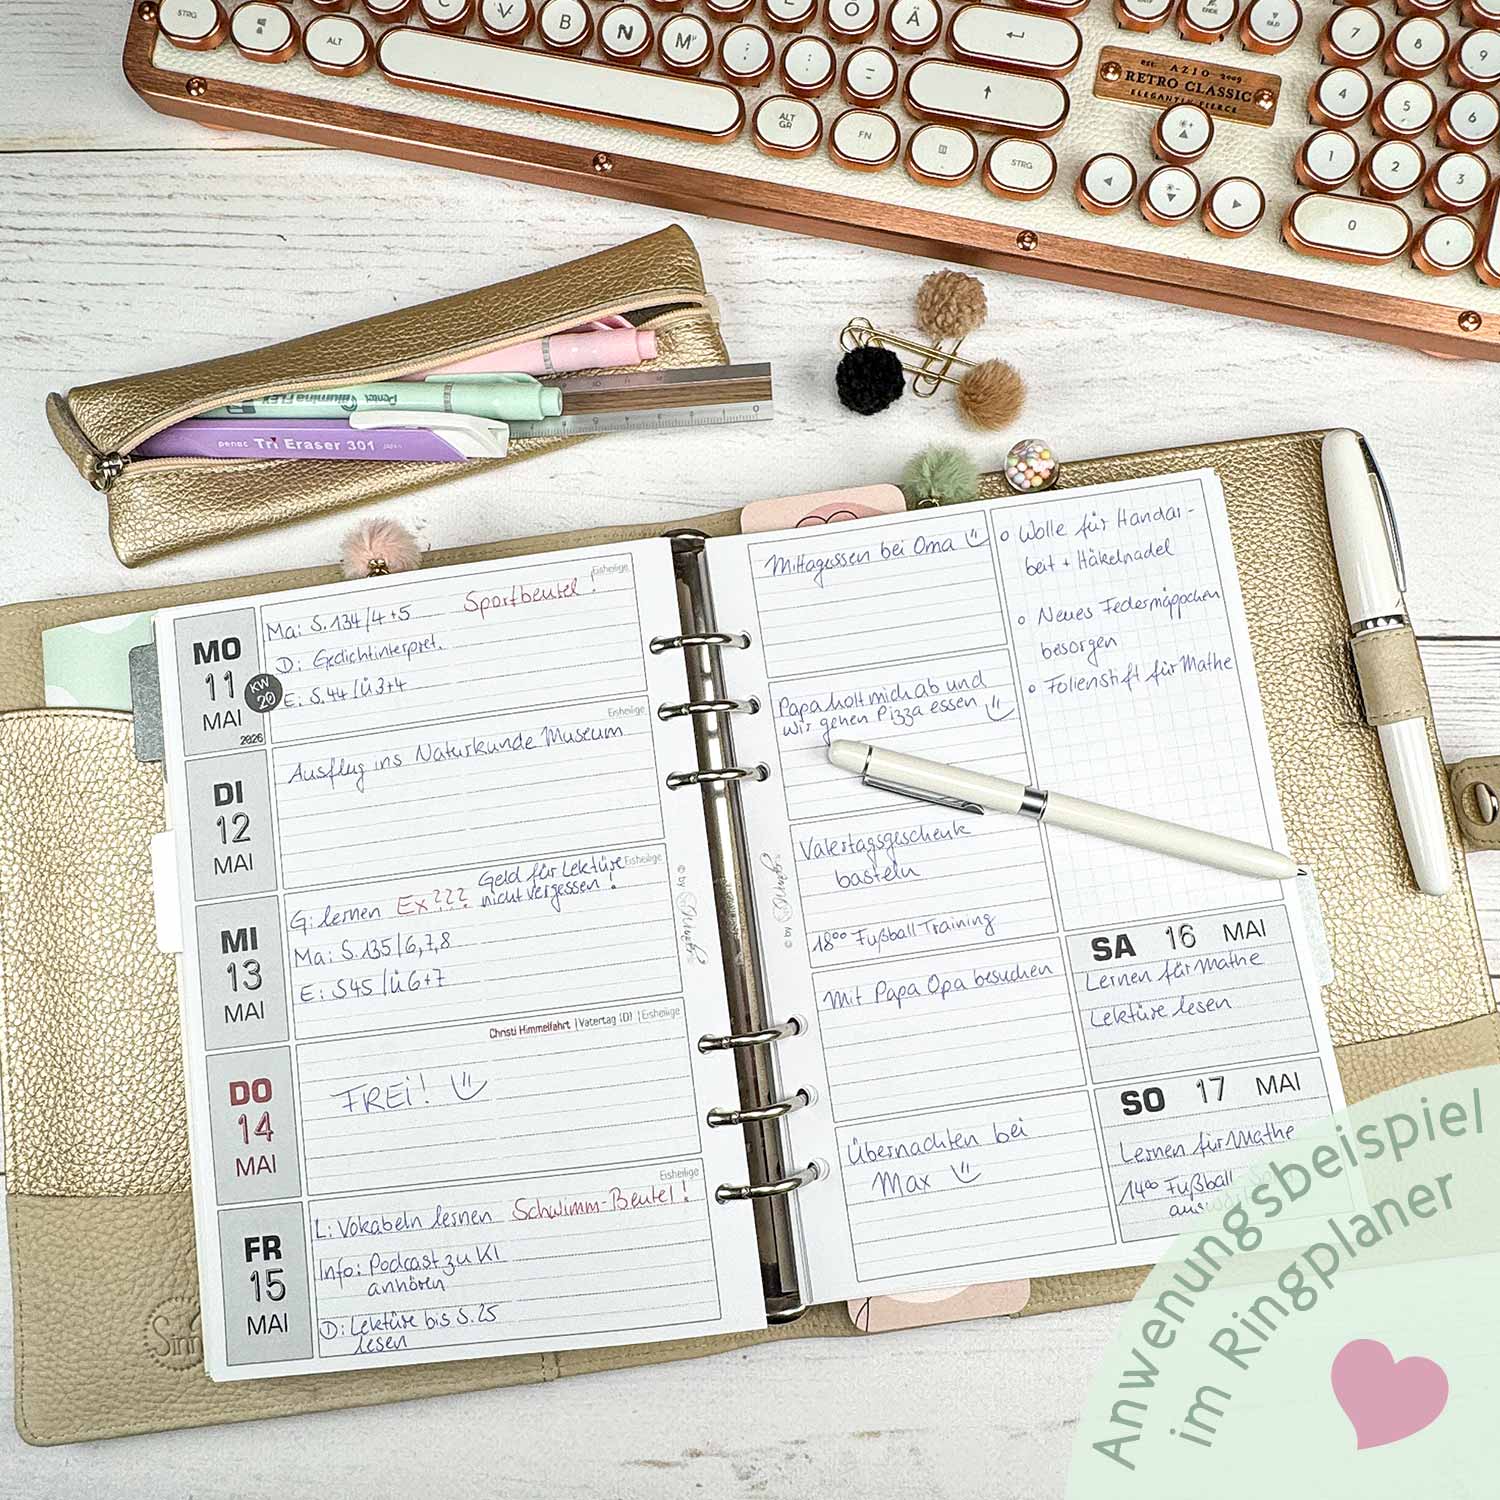 STRG
ALT
C V B N M
Ö Ä
ALT GR
FN
STRG
EST. AZIO 2009
RETRO CLASSIC
ELEGANTLY FIERCE
7 8 9
4 5 6
1 2 3
0
Pentel illumina FLEX
penac Tri Eraser 301
MO
11
MAI
2026
KW
20
Eisheilige
Ma: S.134/4+5 Sportbeutel!
D: Gedichtinterpret.
E: S.44/Ü3+4
DI
12
MAI
Eisheilige
Ausflug ins Naturkunde Museum
MI
13
MAI
Eisheilige
G: lernen Ex??? Geld für Lektüre
nicht vergessen!
Ma: S.135/6,7,8
E: S45/Ü6+7
DO
14
MAI
Christi Himmelfahrt | Vatertag (D) | Eisheilige
FREI!
FR
15
MAI
Eisheilige
L: Vokabeln lernen Schwimm-Beutel!
Info: Podcast zu KI
anhören
D: Lektüre bis S.25
lesen
© by
Mittagessen bei Oma
Papa holt mich ab und
wir gehen Pizza essen
Vatertagsgeschenk
basteln
18⁰⁰ Fußball Training
Mit Papa Opa besuchen
Übernachten bei
Max
© by
o Wolle für Handar-
beit + Häkelnadel
o Neues Federmäppchen
besorgen
o Folienstift für Mathe
SA 16 MAI
Lernen für Mathe
Lektüre lesen
SO 17 MAI
Lernen für Mathe
14⁰⁰ Fußball
Anwenungsbeispiel
im Ringplaner